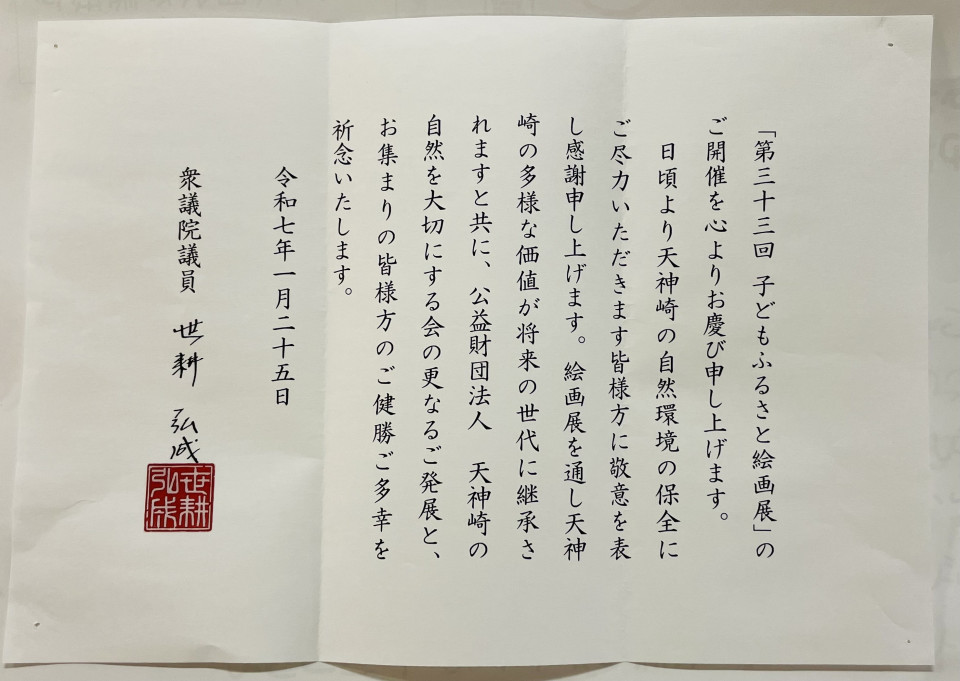 「第三十三回 子どもふるさと絵画展」の
ご開催を心よりお慶び申し上げます。
日頃より天神崎の自然環境の保全に
ご尽力いただきます皆様方に敬意を表
し感謝申し上げます。絵画展を通し天神
崎の多様な価値が将来の世代に継承さ
れますと共に、公益財団法人 天神崎の
自然を大切にする会の更なるご発展と、
お集まりの皆様方のご健勝ご多幸を
祈念いたします。
令和七年一月二十五日
衆議院議員 世耕 弘成
世耕
弘成